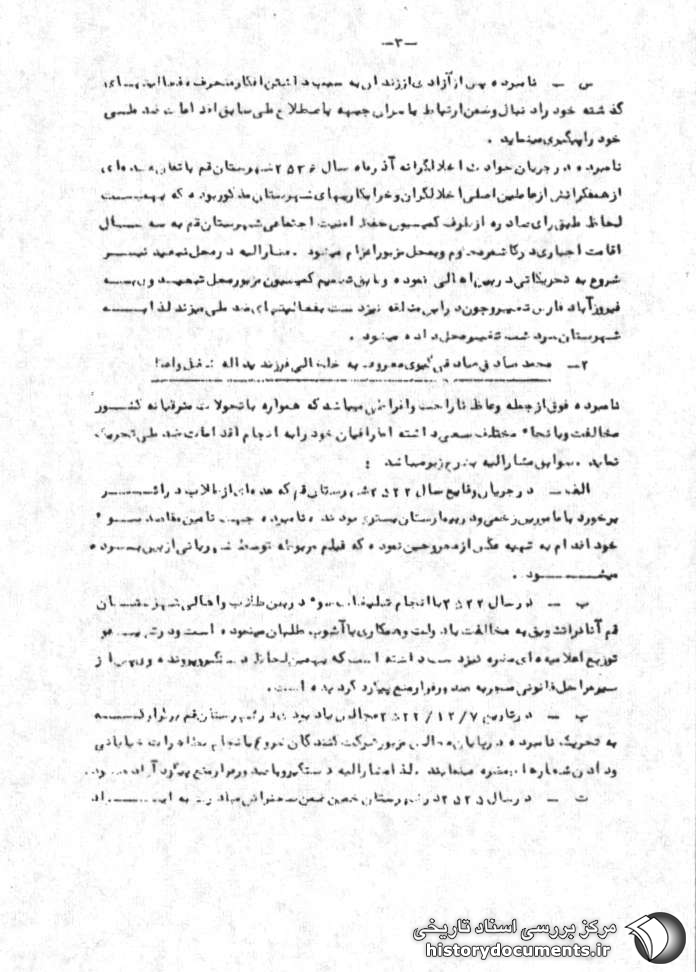 -۳-
س - نامبرده پس از آزادی از زندان به سبب داشتن افکار منحرف فعالیتهای
گذشته خود را دنبال و ضمن ارتباط با سران جبهه باصطلاح ملی سابق اقدامات ضد ملی
خود را پیگیری مینماید .
نامبرده در جریان حوادث اخلالگرانه آذرماه سال ۲۵۳۶ شهرستان قم باتفاق عده‌ای
از همفکرانش از عاملین اصلی اخلالگران و خرابکاریهای شهرستان مذکور بوده که بهمین
لحاظ طبق رای صادره از طرف کمیسیون حفظ امنیت اجتماعی شهرستان قم به سه سال
اقامت اجباری در کاشمر محکوم و بمحل مزبور اعزام میشود . مشارالیه در محل تبعید نیز
شروع به تحریکاتی در بین اهالی نموده و طبق تصمیم کمیسیون مزبور محل تبعید وی به
فیروزآباد فارس تغییر و چون در این منطقه نیز دست بفعالیتهای ضد ملی میزند لذا به
شهرستان سردشت تغییر محل داده میشود .
۲- محمد صادق صادقی گیوی معروف به خلخالی فرزند یداله شغل واعظ
نامبرده فوق از جمله وعاظ ناراحت و افراطی میباشد که همواره با تحولات مترقیانه کشور
مخالفت و بانحاء مختلف سعی داشته اطرافیان خود را به انجام اقدامات ضد ملی تحریک
نماید . سوابق مشارالیه بشرح زیر میباشد :
الف - در جریان وقایع سال ۲۵۲۲ شهرستان قم که عده‌ای از طلاب در اثر
برخورد با مامورین زخمی و در بیمارستان بستری بودند نامبرده جهت تامین مقاصد سوء
خود اقدام به تهیه عکس از مجروحین نموده که فیلم مربوطه توسط شهربانی از بین برده
میشود .
ب - در سال ۲۵۲۲ با انجام تبلیغات سوء در بین طلاب و اهالی شهرستان
قم آنان را تشویق به مخالفت با دولت و همکاری با آشوب طلبان مینموده است و در تهیه و
توزیع اعلامیه‌های مضره نیز دست داشته است که بهمین لحاظ دستگیر و پرونده وی پس از
سیر مراحل قانونی منجر به صدور قرار منع پیگرد گردیده است.
پ - در تاریخ ۲۵۲۲/۱۲/۷ مجالس یادبودی در شهرستان قم برگزار که
به تحریک نامبرده در پایان مجالس مزبور شرکت کنندگان شروع بانجام تظاهرات خیابانی
و دادن شعارهای مضره مینمایند . لذا مشارالیه دستگیر و با صدور قرار منع پیگرد آزاد میشود.
ت - در سال ۲۵۲۵ در شهرستان خمین ضمن سخنرانی مبادرت به ایراد
مرکز بررسی اسناد تاریخی
historydocuments.ir